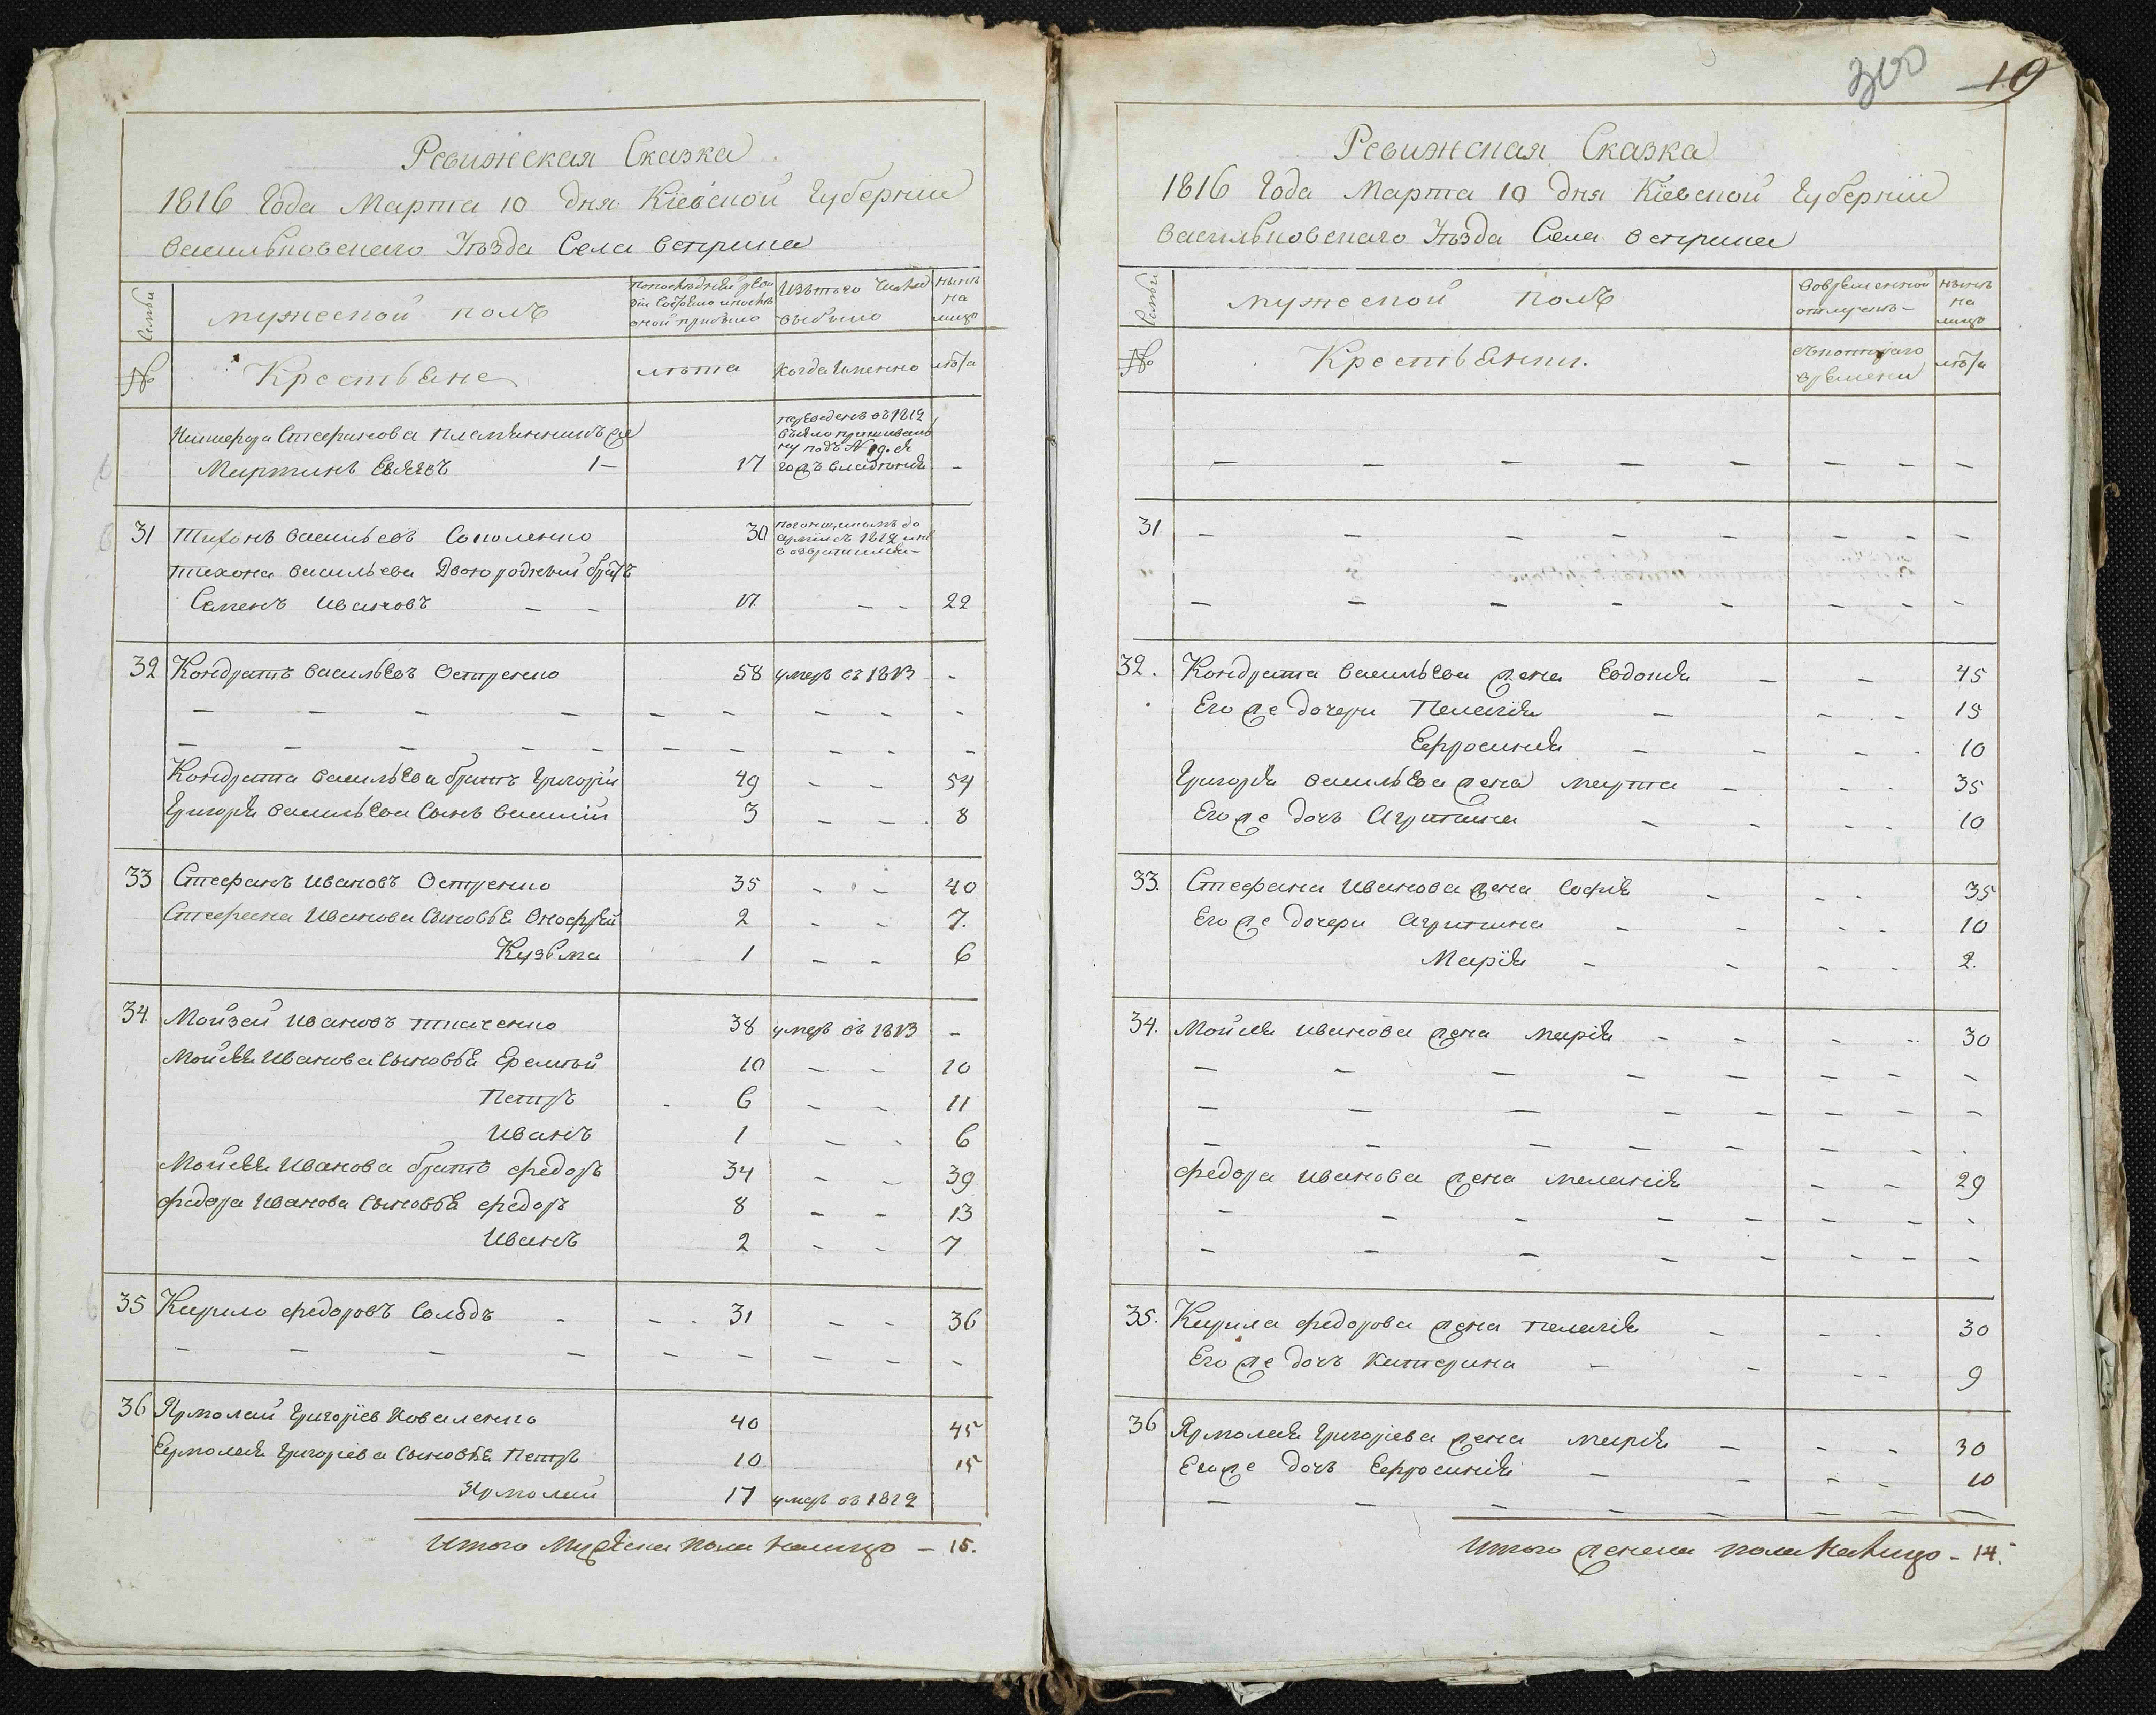 Ревижская Сказка
1816 Года Марта 10 дня Кіевской Губерніи
Васильковскаго Уѣзда Села Острика
Семьи
мужеской полъ
Изътого числа выбыло
нынѣ на лицо
№
Крестьяне
лѣта
когда Именно
лѣта
Стефанова племянникъ же
переведенъ въ 1812
подъ № 19. й
Мартинъ 1 — 17 —
31 Тихонъ Васильевъ Соколенко 30
до арміи въ 1812
Тихона Васильева Двоюродный братъ
Семенъ Ивановъ — — 17. — — 22
32 Кондратъ Васильевъ Остренко 58 умеръ въ 1813 -
Кондрата Васильева братъ Григорій 49 - - 54
Григорія Васильева Сынъ Василій 3 - - 8
33 Стефанъ Ивановъ Остренко 35 - - 40
Стефана Иванова Сыновья Онофрей 2 - - 7.
Кузьма 1 - - 6
34. Мойзей Ивановъ Ткаченко 38 умеръ въ 1813 -
Мойсея Иванова Сыновья Еремѣй 10 - - 10
Петръ 6 - - 11
Иванъ 1 - - 6
Мойсея Иванова братъ Федоръ 34 - - 39
Федора Иванова Сыновья Федоръ 8 - - 13
Иванъ 2 - - 7
35 Кирило Федоровъ Солодъ - - - 31 - - 36
36 Ярмолай Григоріев Коваленко 40 45
Ермолая Григоріева Сыновья Петръ 10 15
Ярмолай 17 умеръ въ 1812
Итого Мужеска пола налицо — 15.
300 19
Ревижская Сказка
1816 Года Марта 10 дня Кіевской Губерніи
Васильковскаго Уѣзда Села Острика
Семьи
мужеской полъ
Вовременной отлучкѣ —
нынѣ на лицо
№
Крестьянки.
съкотораго времени
лѣта
31.
32. Кондрата Васильева жена Евдокія - - 45
Его же дочери Пелагія - - - 15
Ефросинія - - - - 10
Григорія Васильева жена Марта - - - 35
Его же дочь Агрипина - - - - 10
33. Стефана Иванова жена Софія - - - 35
Его же дочери Агрипина - - - - 10
Марія - - - - 2.
34. Мойсея Иванова жена Марія - - - - 30
Федора Иванова жена Меланія - - 29
35. Кирила Федорова жена Пелагія - - - 30
Его же дочь Катерина - - - - 9
36 Ярмолая Григоріева жена Марія - - - 30
Егоже дочь Ефросинія - - - - 10
Итого женска пола наЛицо - 14.